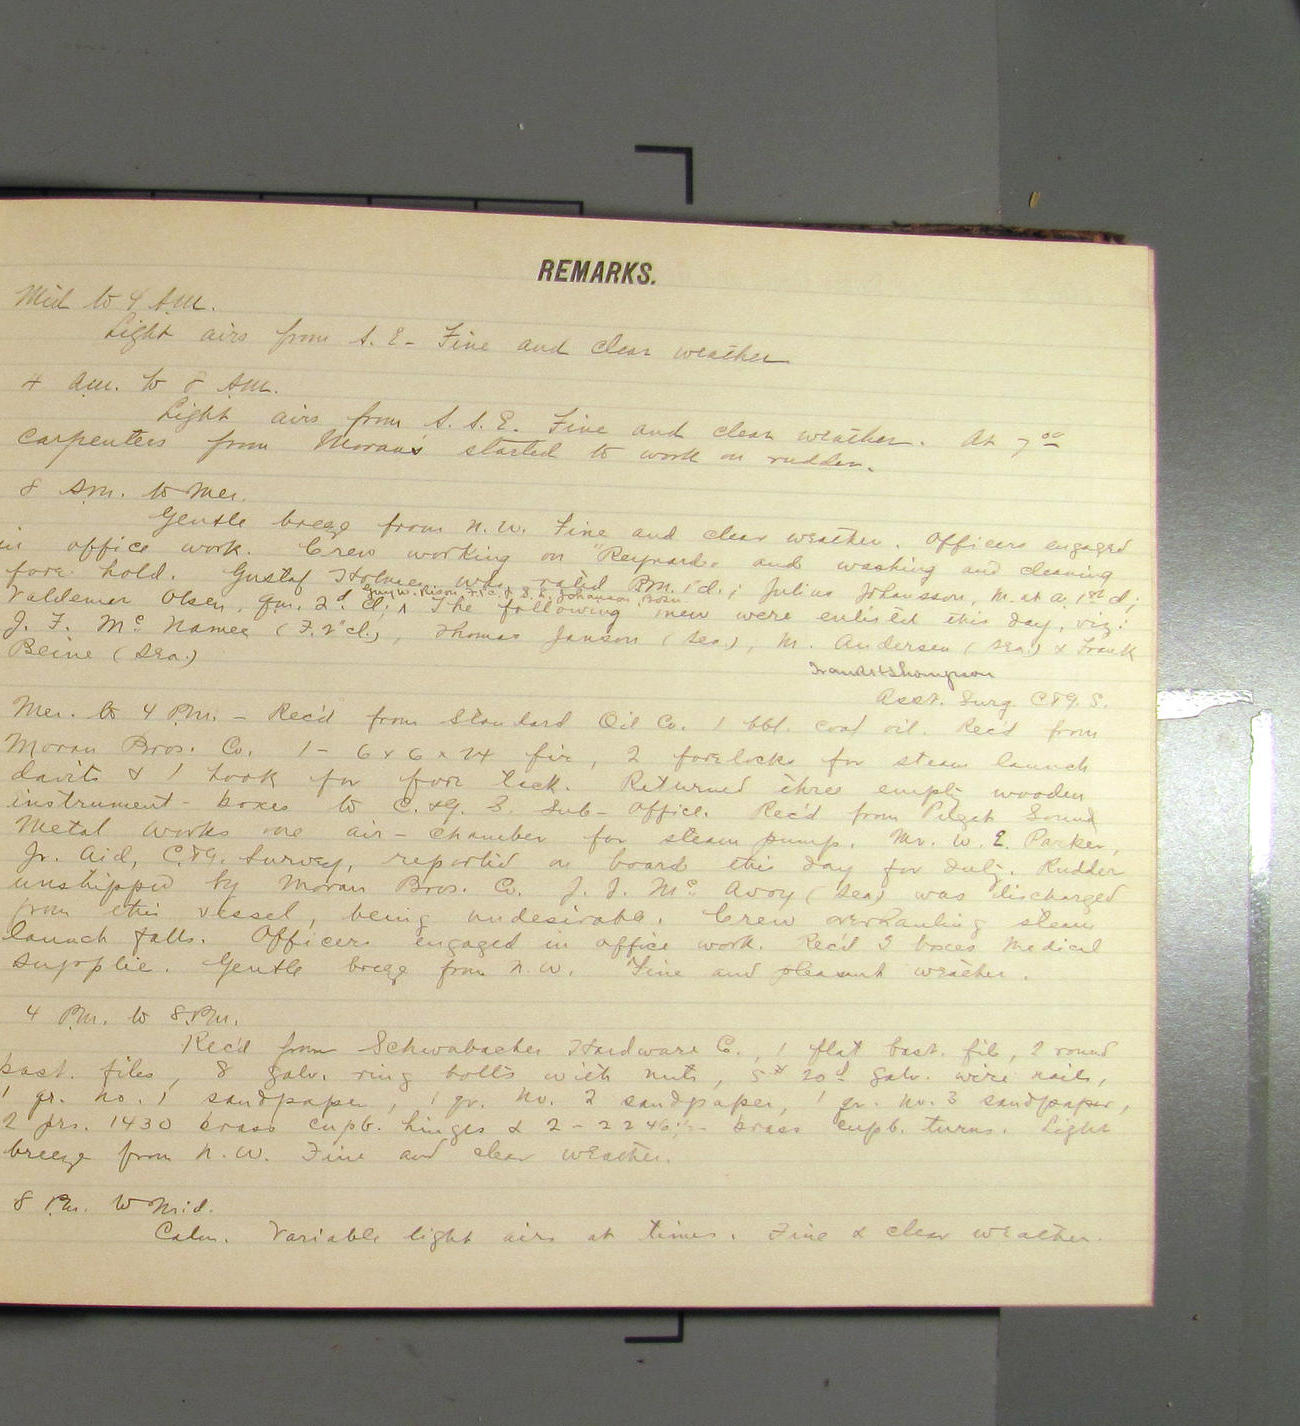 REMARKS.
Mid to 4 A.M.
Light airs from S. E - Fine and clear weather
4 a.m. to 8 A.M.
Light airs from S. S. E. Fine and clear weather. At 7 00
carpenters from Moran's started to work on rudder.
8 A.M. to Mer.
Gentle breeze from N. W. Fine and clear weather. Officers engaged
in office work. Crew working on "Reynard" and washing and cleaning
fore hold. Gustaf was rated 1 cl.; Julius Johansson, M. at a. 1st cl;
Valdemar Olsen, qm. 2d cl; ʌ The following men were enlisted this day, viz:
J. F. Mc Namee (F. 2" cl.), Thomas Janson (Sea.), M. Andersen (Sea.) & Frank
Beine (Sea.)
Thompson
Asst. Surg C & G. S.
Mer. to 4 P.M. - Rec'd from Standard Oil Co. 1 bbl. coal oil. Rec'd from
Moran Bros. Co. 1 - 6 x 6 x 24 fir, 2 forelocks for steam launch
davits & 1 hook for fore tack. Returned three empty wooden
instrument - boxes to C. & G. S. Sub - Office. Rec'd from Puget Sound
Metal Works one air - chamber for steam pump. Mr. W. E. Parker,
Jr. Aid, C. & G. Survey, reported on board this day for duty. Rudder
unshipped by Moran Bros. Co. J. J. Mc Avoy (Sea) was discharged
from this vessel, being undesirable. Crew overhauling steam
launch falls. Officers engaged in office work. Rec'd boxes Medical
supplie. Gentle breeze from N. W. Fine and pleasant weather.
4 P.M. to 8 P.M.
Rec'd from Schwabacher Hardware Co., 1 flat bast. file, 2 round
bast. files, 8 galv. ring bolts with nuts, 5 # 20 d galv. wire nails,
1 qr. No. 1 sandpaper, 1 qr. No. 2 sandpaper, 1 qr. No. 3 sandpaper,
2 prs. 1430 brass cupb. hinges & 2 - brass cupb. turns. Light
breeze from N. W. Fine and clear weather.
8 P.M. to Mid.
Calm. Variable light airs at times. Fine & clear weather.